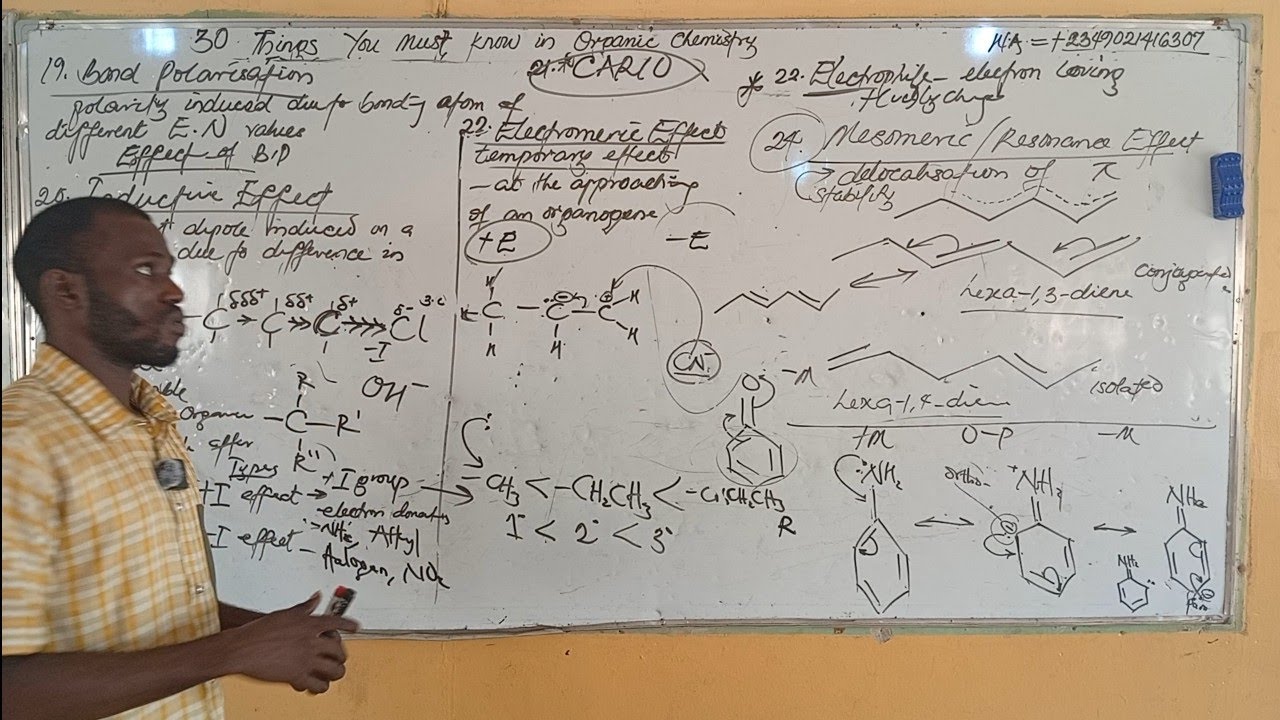 30 Things You Must Know in Organic Chemistry
W.A = +2349021416307
19. Bond Polarisation
polarity induced due to bond-g atom of
different E.N values
Effect of B.P
20. Inductive Effect
dipole induced on a
due to difference in
C δδδ+ C δδ+ C δ+ Cl δ-
-I
OH-
R
Organic -C-R'
R"
offer
Types
+I effect → +I group
electron donates
-NH2, Alkyl
-I effect - Halogen, NO2
21. *CARIO
22. Electromeric Effect
temporary effect
- at the approaching
of an organogene
+E
-E
H H
C - C - C
H H H
CN-
O
-CH3 < -CH2CH3 < 
R
1° < 2° < 3°
* 22. Electrophile - electron loving
24. Mesomeric/Resonance Effect
→ delocalisation of π
stability
hexa-1,3-diene
-M
isolated
hexa-1,4-diene
+M O-P -M
NH2
ortho-
+NH2
NH2
NH2